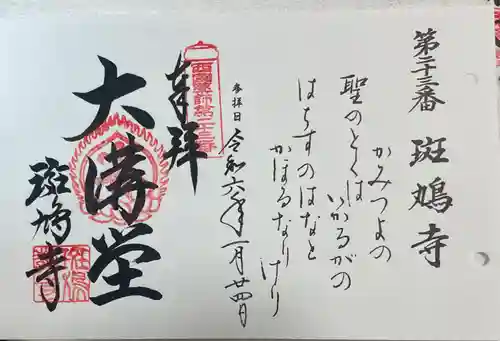 第二十三番 斑鳩寺
かみつよの
聖のとくは いかるがの
はちすのはなと
かほるなりけり
参拝日 令和六年一月廿四日
奉拝
西国薬師第二十三番
大講堂
斑鳩寺